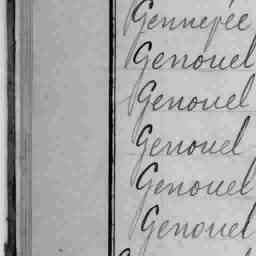 Gennepée
Genouel
Genouel
Genouel
Genouel
Genouel